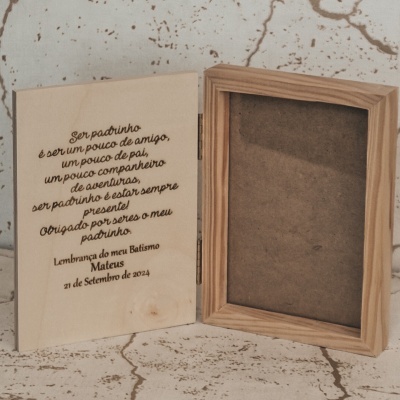 Ser padrinho
é ser um pouco de amigo,
um pouco de pai,
um pouco companheiro
de aventuras,
ser padrinho é estar sempre
presente!
Obrigado por seres o meu
padrinho.
Lembrança do meu Batismo
Mateus
21 de Setembro de 2024